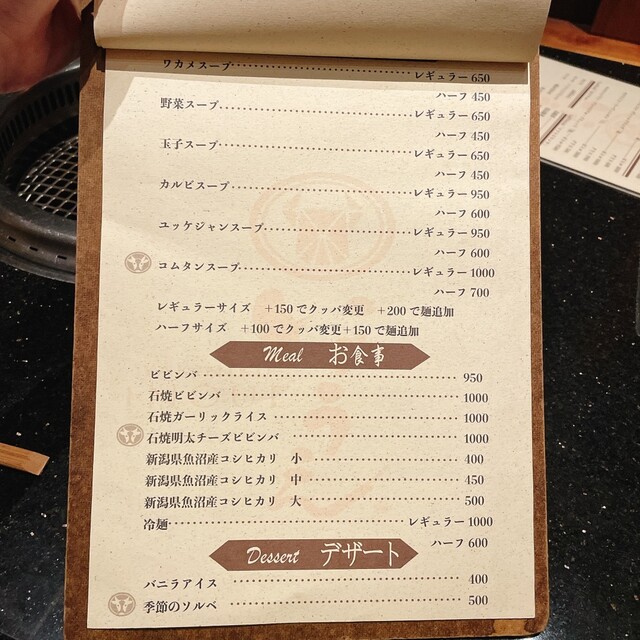 ワカメスープ レギュラー 650
ハーフ 450
野菜スープ レギュラー 650
ハーフ 450
玉子スープ レギュラー 650
ハーフ 450
カルビスープ レギュラー 950
ハーフ 600
ユッケジャンスープ レギュラー 950
ハーフ 600
コムタンスープ レギュラー 1000
ハーフ 700
レギュラーサイズ +150でクッパ変更 +200で麺追加
ハーフサイズ +100でクッパ変更+150で麺追加
Meal お食事
ビビンバ 950
石焼ビビンバ 1000
石焼ガーリックライス 1000
石焼明太チーズビビンバ 1000
新潟県魚沼産コシヒカリ 小 400
新潟県魚沼産コシヒカリ 中 450
新潟県魚沼産コシヒカリ 大 500
冷麺 レギュラー 1000
ハーフ 600
Dessert デザート
バニラアイス 400
季節のソルベ 500